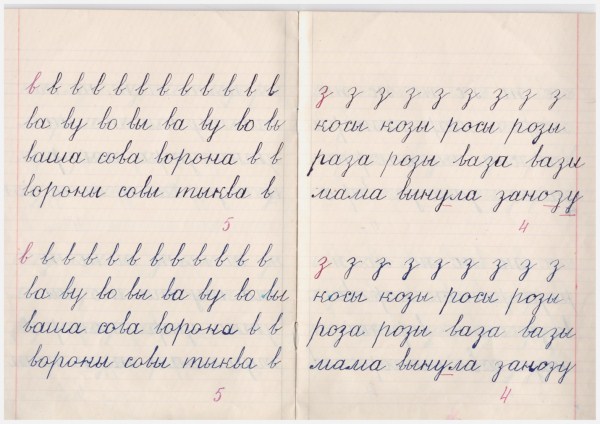 в в в в в в в в в в в в
ва ву во вы ва ву во вы
ваша сова ворона в в
вороны совы тыква в
5
в в в в в в в в в в в в
ва ву во вы ва ву во вы
ваша сова ворона в в
вороны совы тыква в
5
з з з з з з з з з
косы козы росы розы
раза розы ваза вазы
мама вынула занозу
4
з з з з з з з з з
косы козы росы розы
роза розы ваза вазы
мама вынула занозу
4